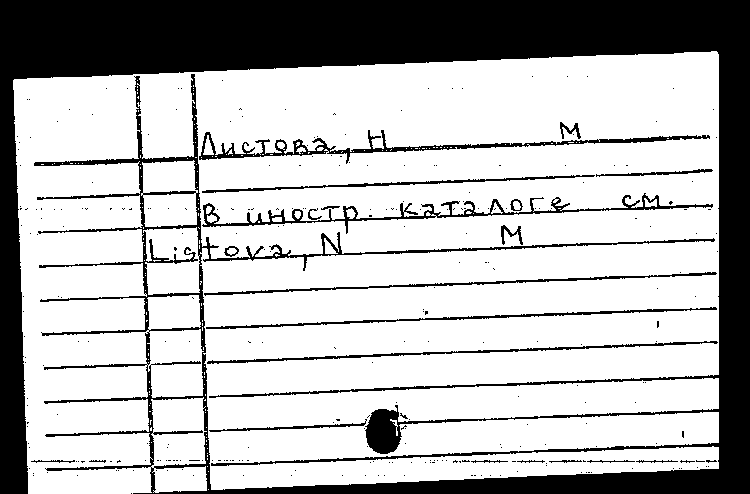 Листова, Н М
В иностр. каталоге см.
Listova, N M